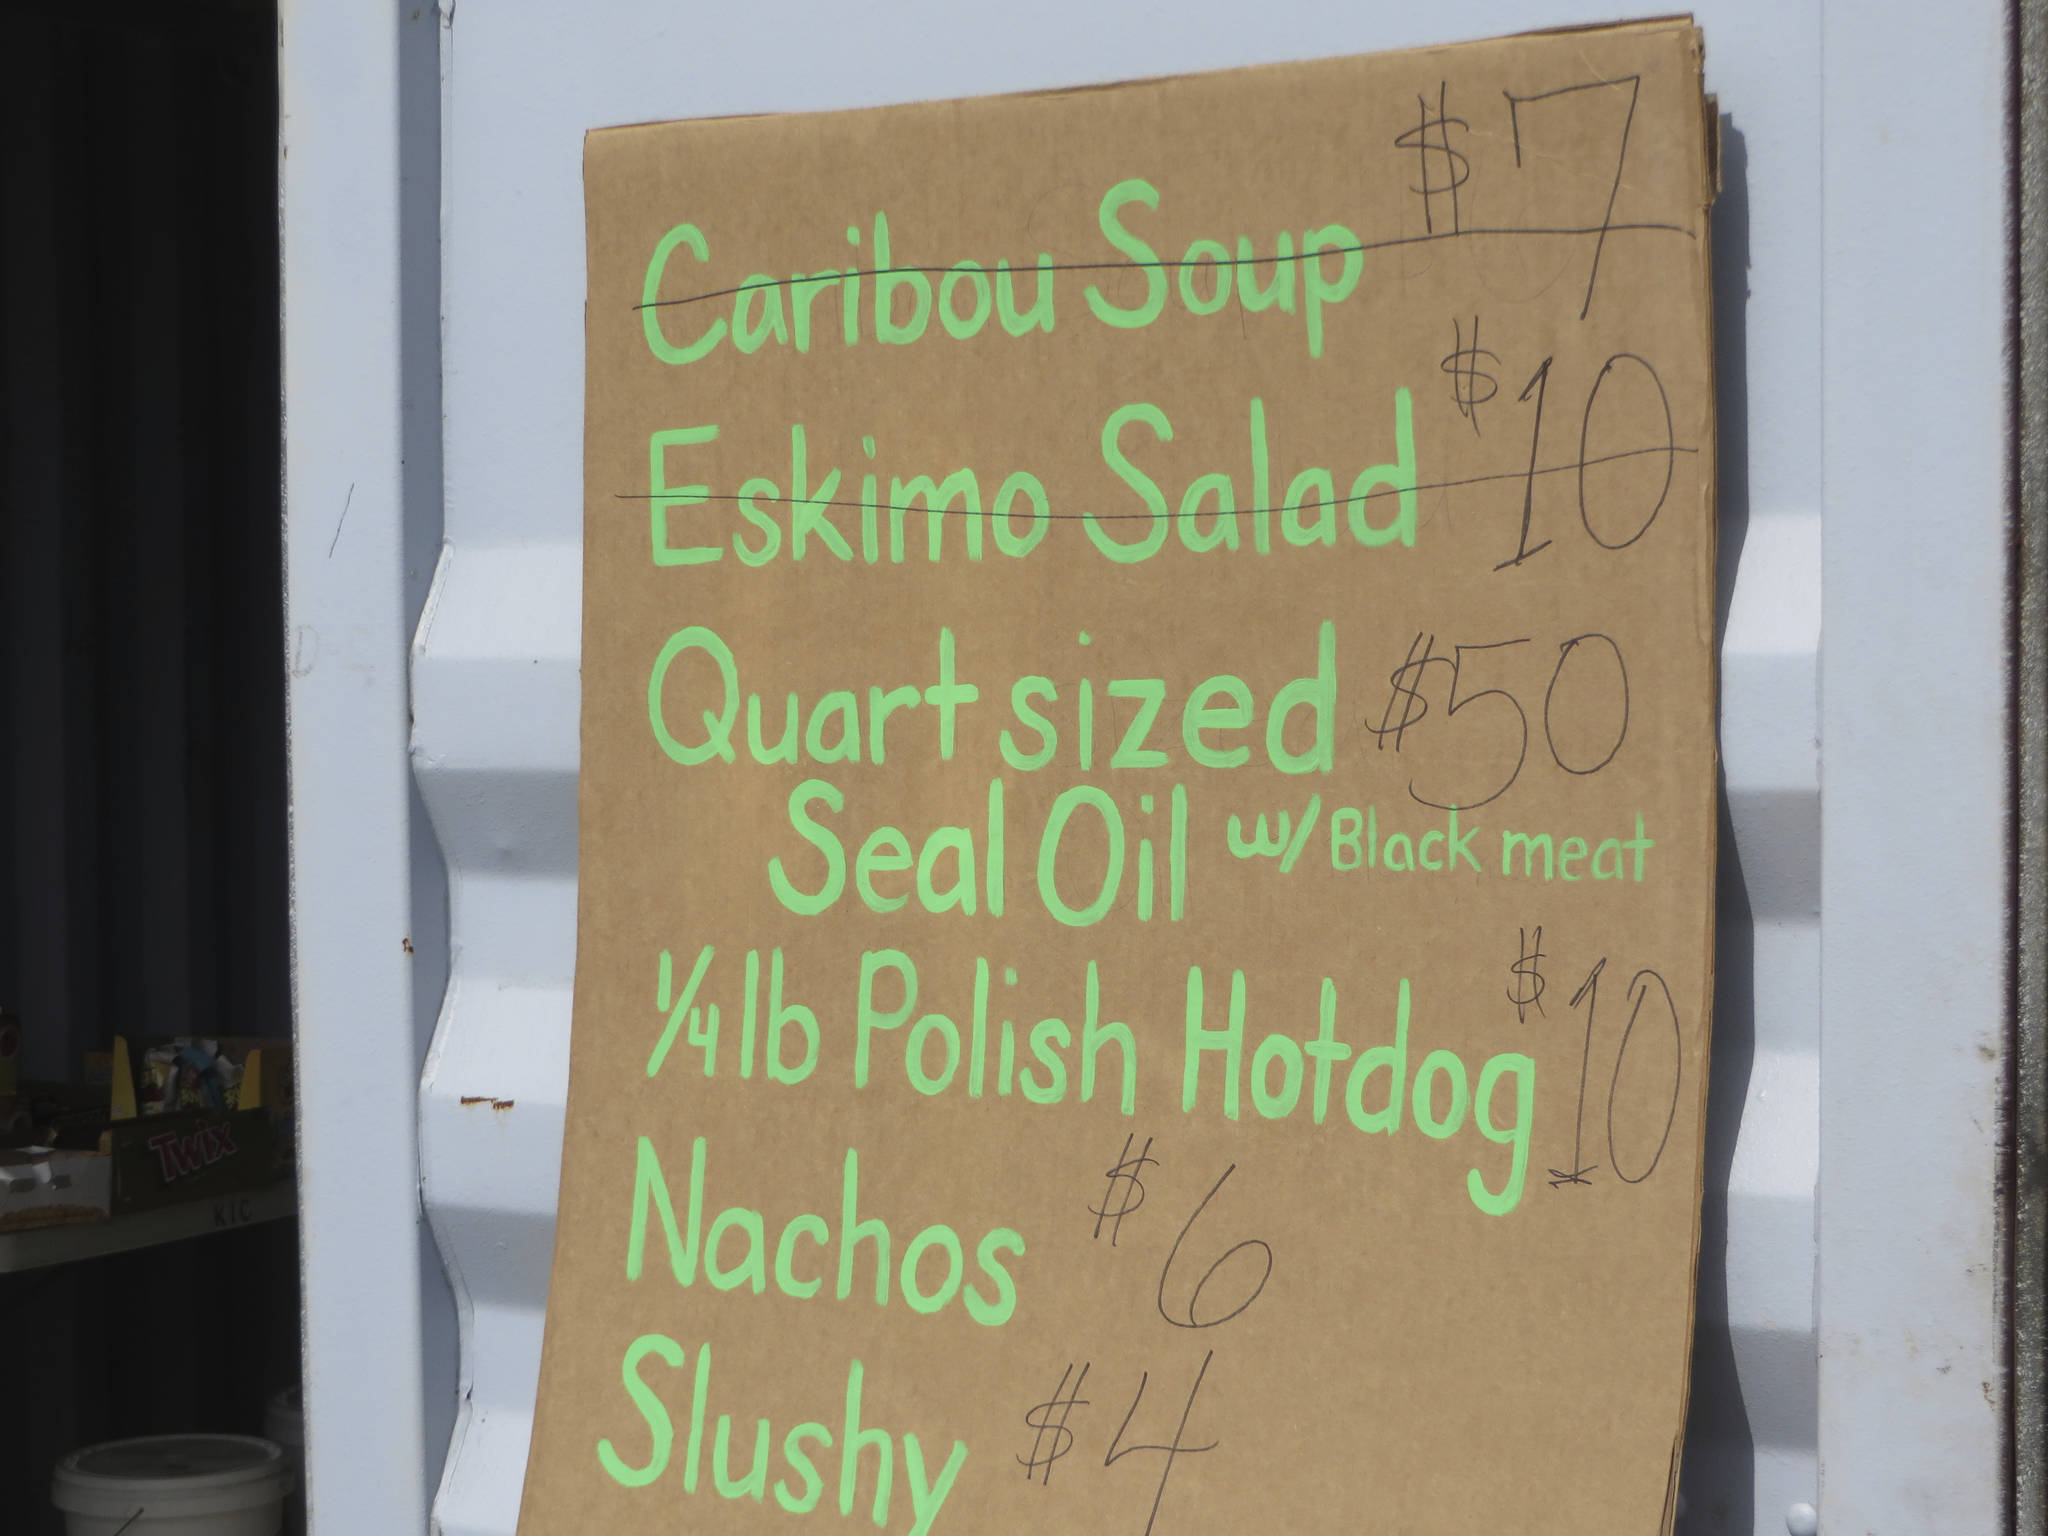 Caribou Soup $7
Eskimo Salad $10
Quart sized $50
Seal Oil w/ Black meat
1/4 lb Polish Hotdog $10
Nachos $6
Slushy $4
Twix
KIC